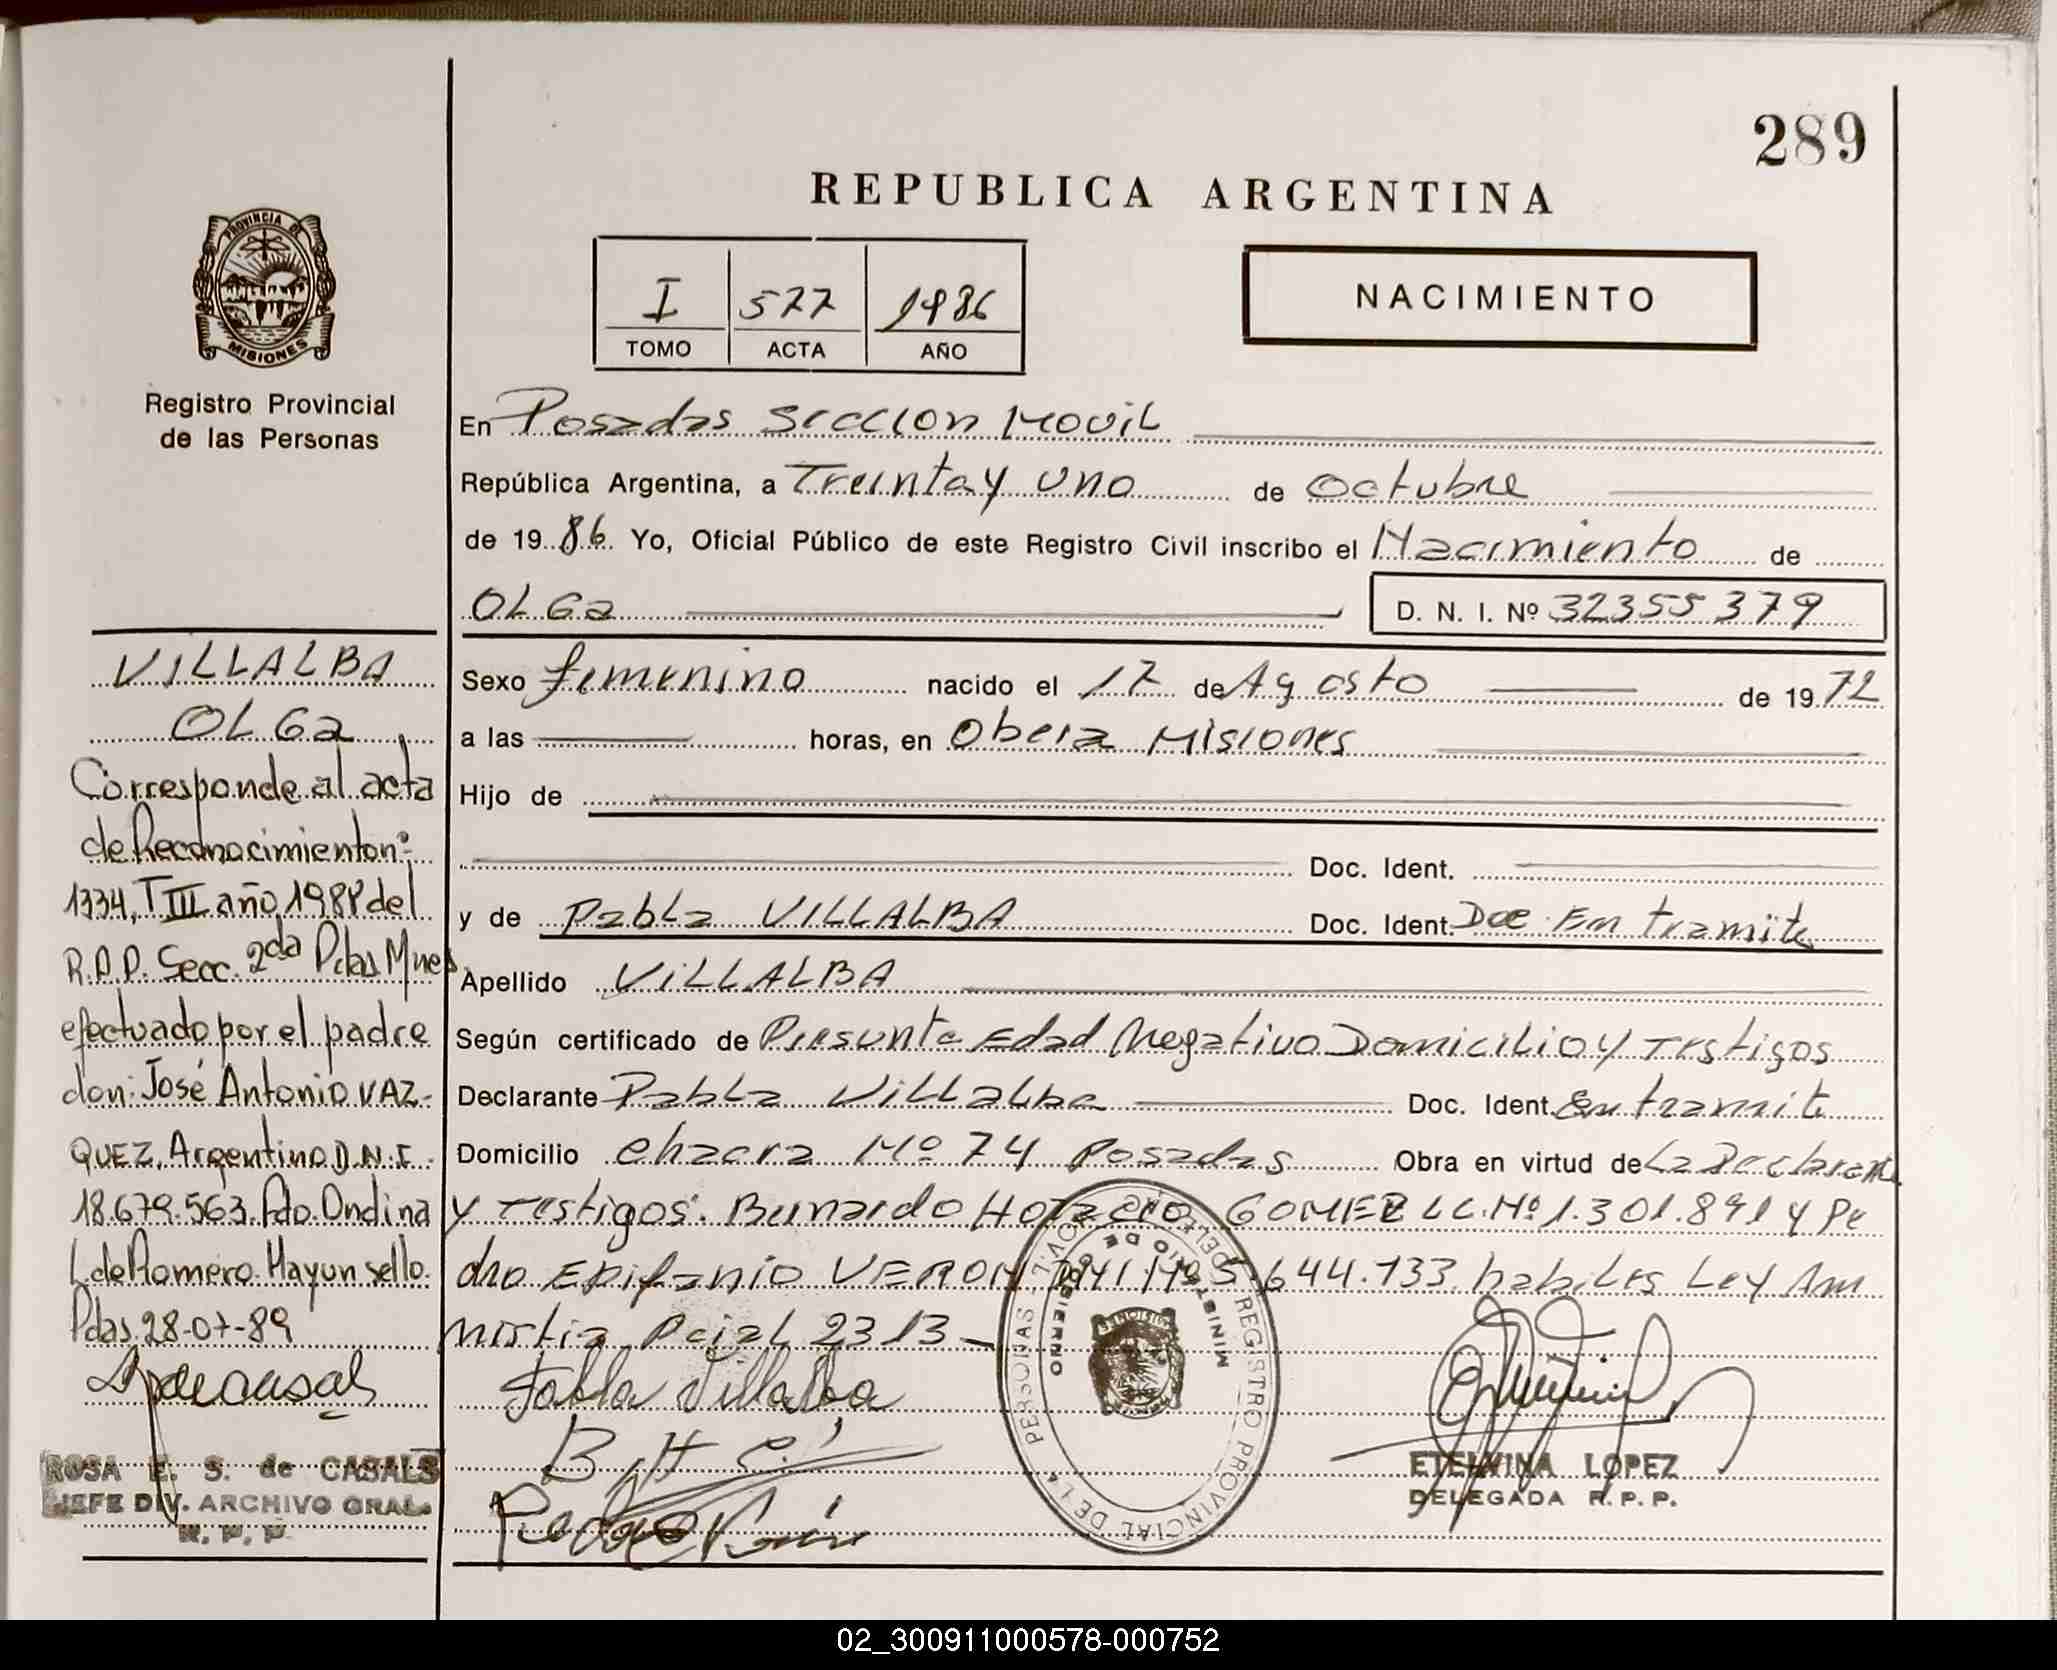 289
REPUBLICA ARGENTINA
I 577 1986
TOMO ACTA AÑO
NACIMIENTO
PROVINCIA DE
MISIONES
Registro Provincial
de las Personas
En Posadas Seccion Movil
República Argentina, a Treinta y uno de Octubre
de 1986 Yo, Oficial Público de este Registro Civil inscribo el Nacimiento de
OLGa D. N. I. Nº 32355379
Sexo femenino nacido el 17 de Agosto de 1972
a las horas, en Obera Misiones
Hijo de
Doc. Ident.
y de Pabla VILLALBA Doc. Ident. Doc Em tramite
Apellido VILLALBA
Según certificado de Presunta Edad Negativo Domicilio y Testigos
Declarante Pabla Villalba Doc. Ident. Em tramite
Domicilio chacra Nº 74 Posadas Obra en virtud de La Declarante
y Testigos: Bernardo Horacio GOMEZ LC. Nº 1.301.891 y Pe
dro Epifanio VERON DNI Nº 5.644.133 habiles Ley Am
nistia Pcial 2313
Pabla Villalba
ETELVINA LOPEZ
DELEGADA R. P. P.
REGISTRO PROVINCIAL DE LAS PERSONAS
MINISTERIO DE GOBIERNO
VILLALBA
OLGa
Corresponde al acta
de Reconocimiento nº
1334, T III año 1988 del
R.P.P. Secc. 2da Pdas Mnes
efectuado por el padre
don: José Antonio VAZ-
QUEZ, Argentino D.N.I.
18.679.563. Fdo. Ondina
L. de Romero. Hay un sello.
Pdas. 28-07-89
ROSA E. S. de CASALS
JEFE DIV. ARCHIVO GRAL.
R. P. P.
02_300911000578-000752